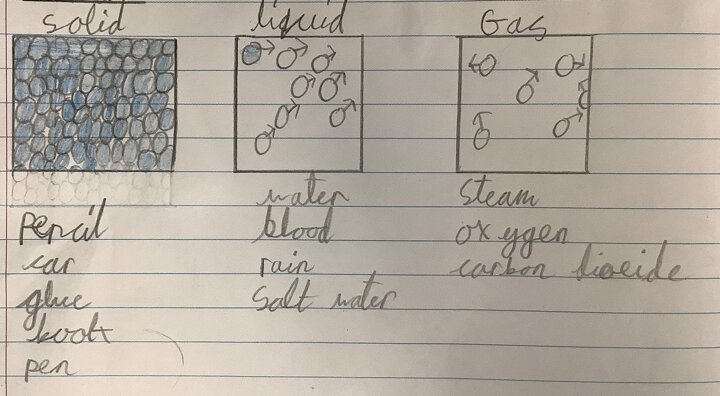 solid
liquid
Gas
water
blood
rain
salt water
steam
oxygen
carbon dioeide
pencil
car
glue
book
pen